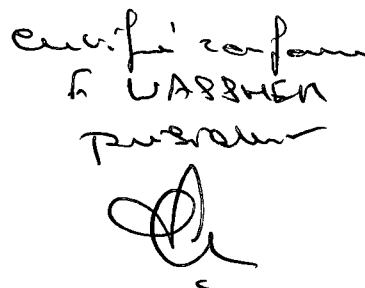 certifié conforme
F. WASSMER
président